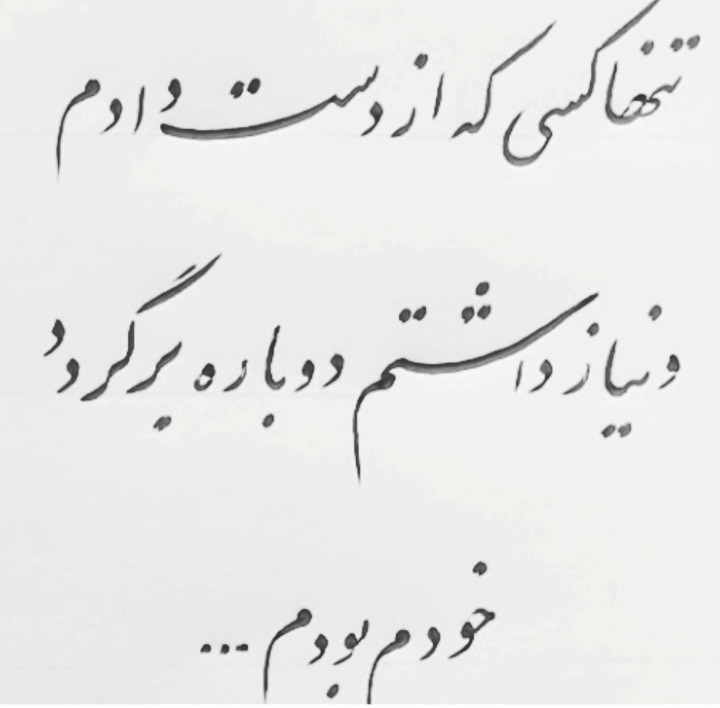 تنها کسی که از دست دادم
و نیاز داشتم دوباره برگردد
خودم بودم ...